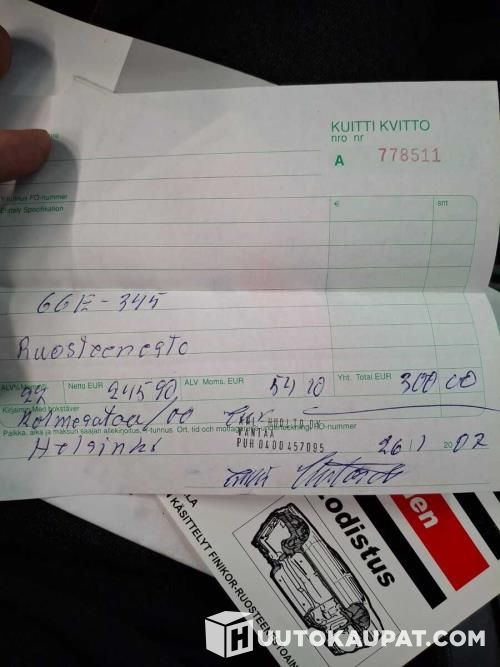 KUITTI KVITTO
nro nr
A 778511
Y-tunnus FO-nummer
Erittely Specifikation
€ snt
GGE-345
Ruosteenesto
ALV% Moms% Netto EUR ALV Moms. EUR Yht. Total EUR
22 245 90 54 10 300 00
Kirjaimin Med bokstäver
Kolmesataa/00 Eur
HUOLTO OY
Paikka, aika ja maksun saajan allekirjoitus, Y-tunnus Ort, tid och mottagarens underteckning, FO-nummer
VANTAA
Helsinki PUH 0400457095 26/1 2007
odistus
KÄSITTELYT FINIKOR-RUOSTEEN
HUUTOKAUPAT.COM